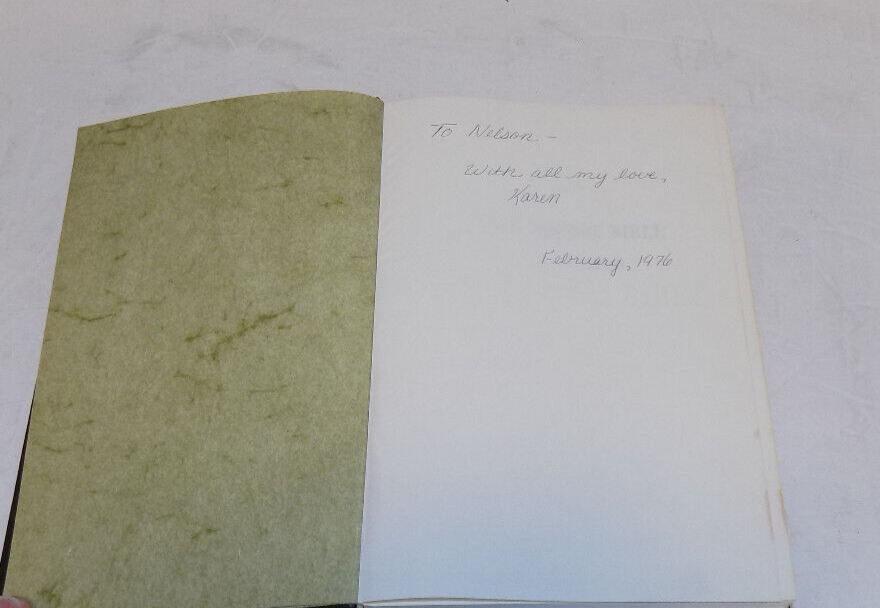 To Nelson -
With all my love,
Karen
February, 1976